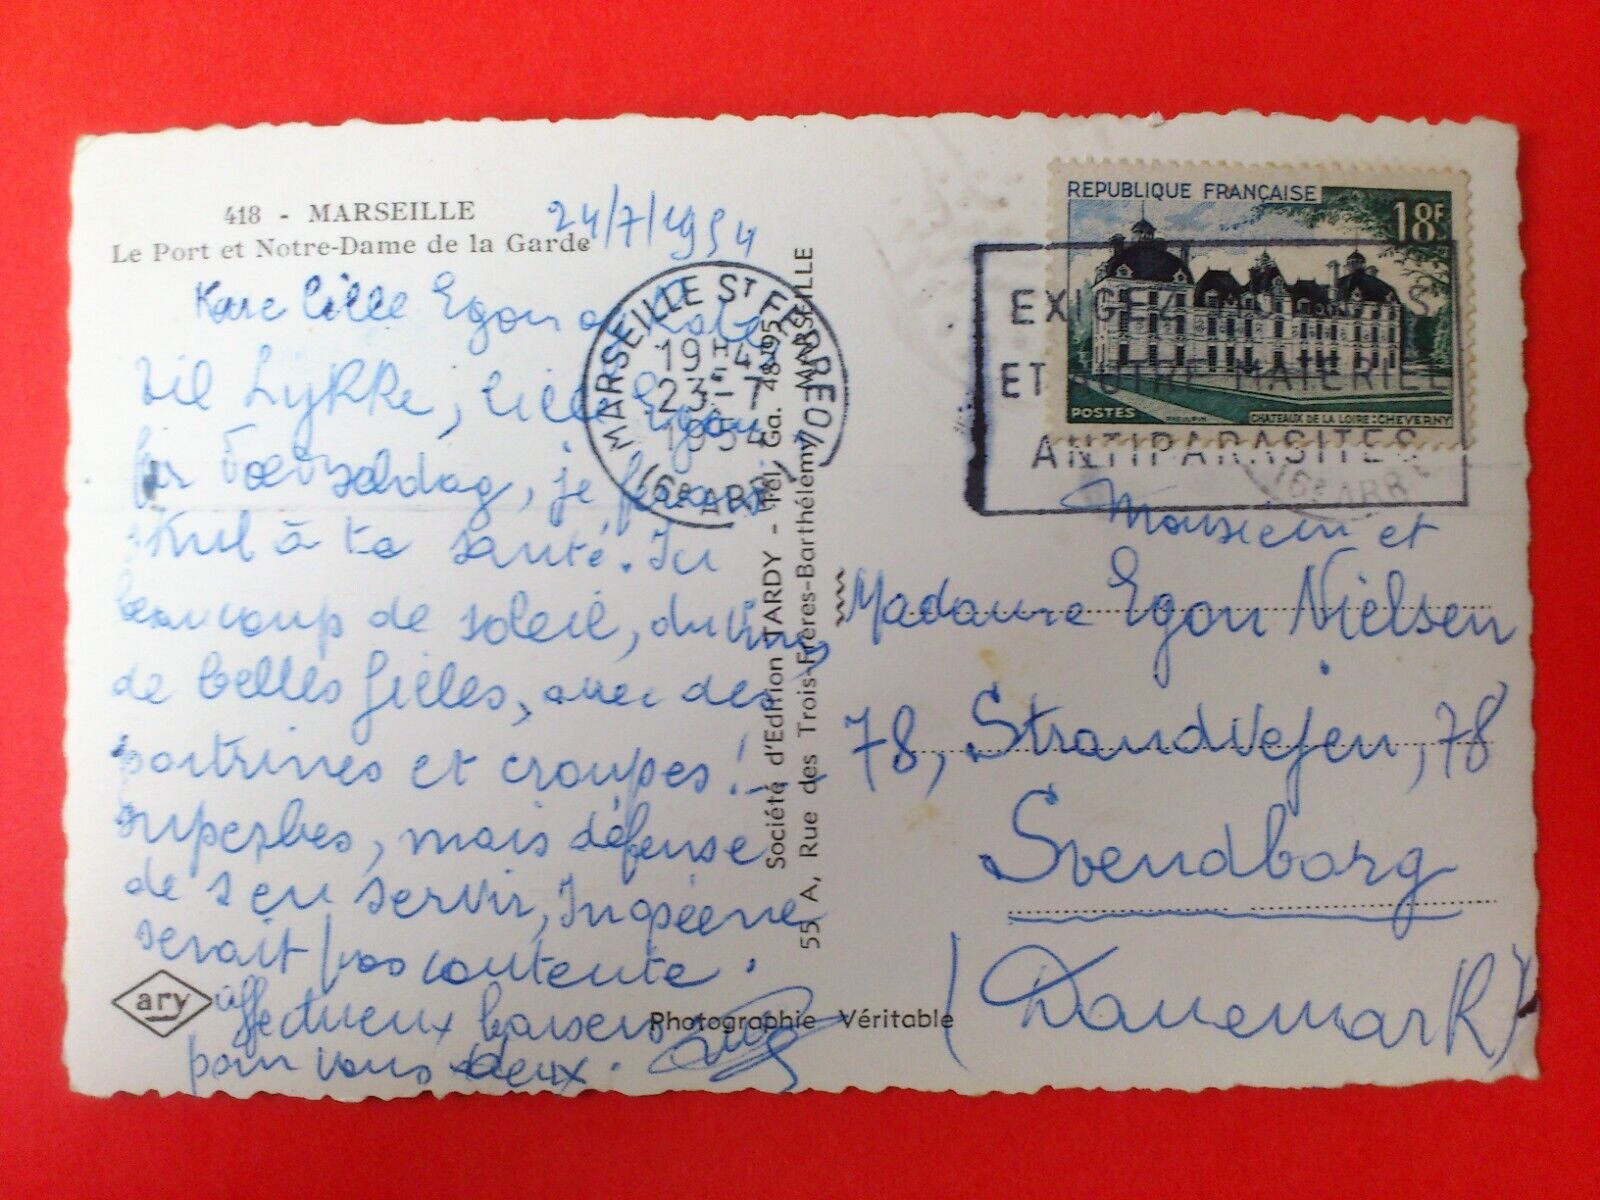 418 - MARSEILLE
Le Port et Notre-Dame de la Garde
24/7/1954
Kære lille Egon
til Lykke, lille Egon
for Foedseldag, je ferais
skul à ta santé. Ici
beaucoup de soleil, du vin,
de belles filles, avec des
poitrines et croupes!
superbes, mais défense
de s'en servir, Ingeéne
serait pas contente.
affectueux baisers
pour vous deux.
ary
Photographie Véritable
Société d'Edition TARDY - Tél. Ga. 48-95
55 A, Rue des Trois-Frères-Barthélemy - MARSEILLE
MARSEILLE ST FERREOL
19H45
23-7
195
(6e ARRt)
REPUBLIQUE FRANÇAISE
18F
POSTES
CHATEAUX DE LA LOIRE: CHEVERNY
EXIGEZ
ET VOTRE MATERIEL
ANTIPARASITES
(6e ARR
Monsieur et
Madame Egon Nielsen
78, Strandvejen, 78
Svendborg
(Danemark)